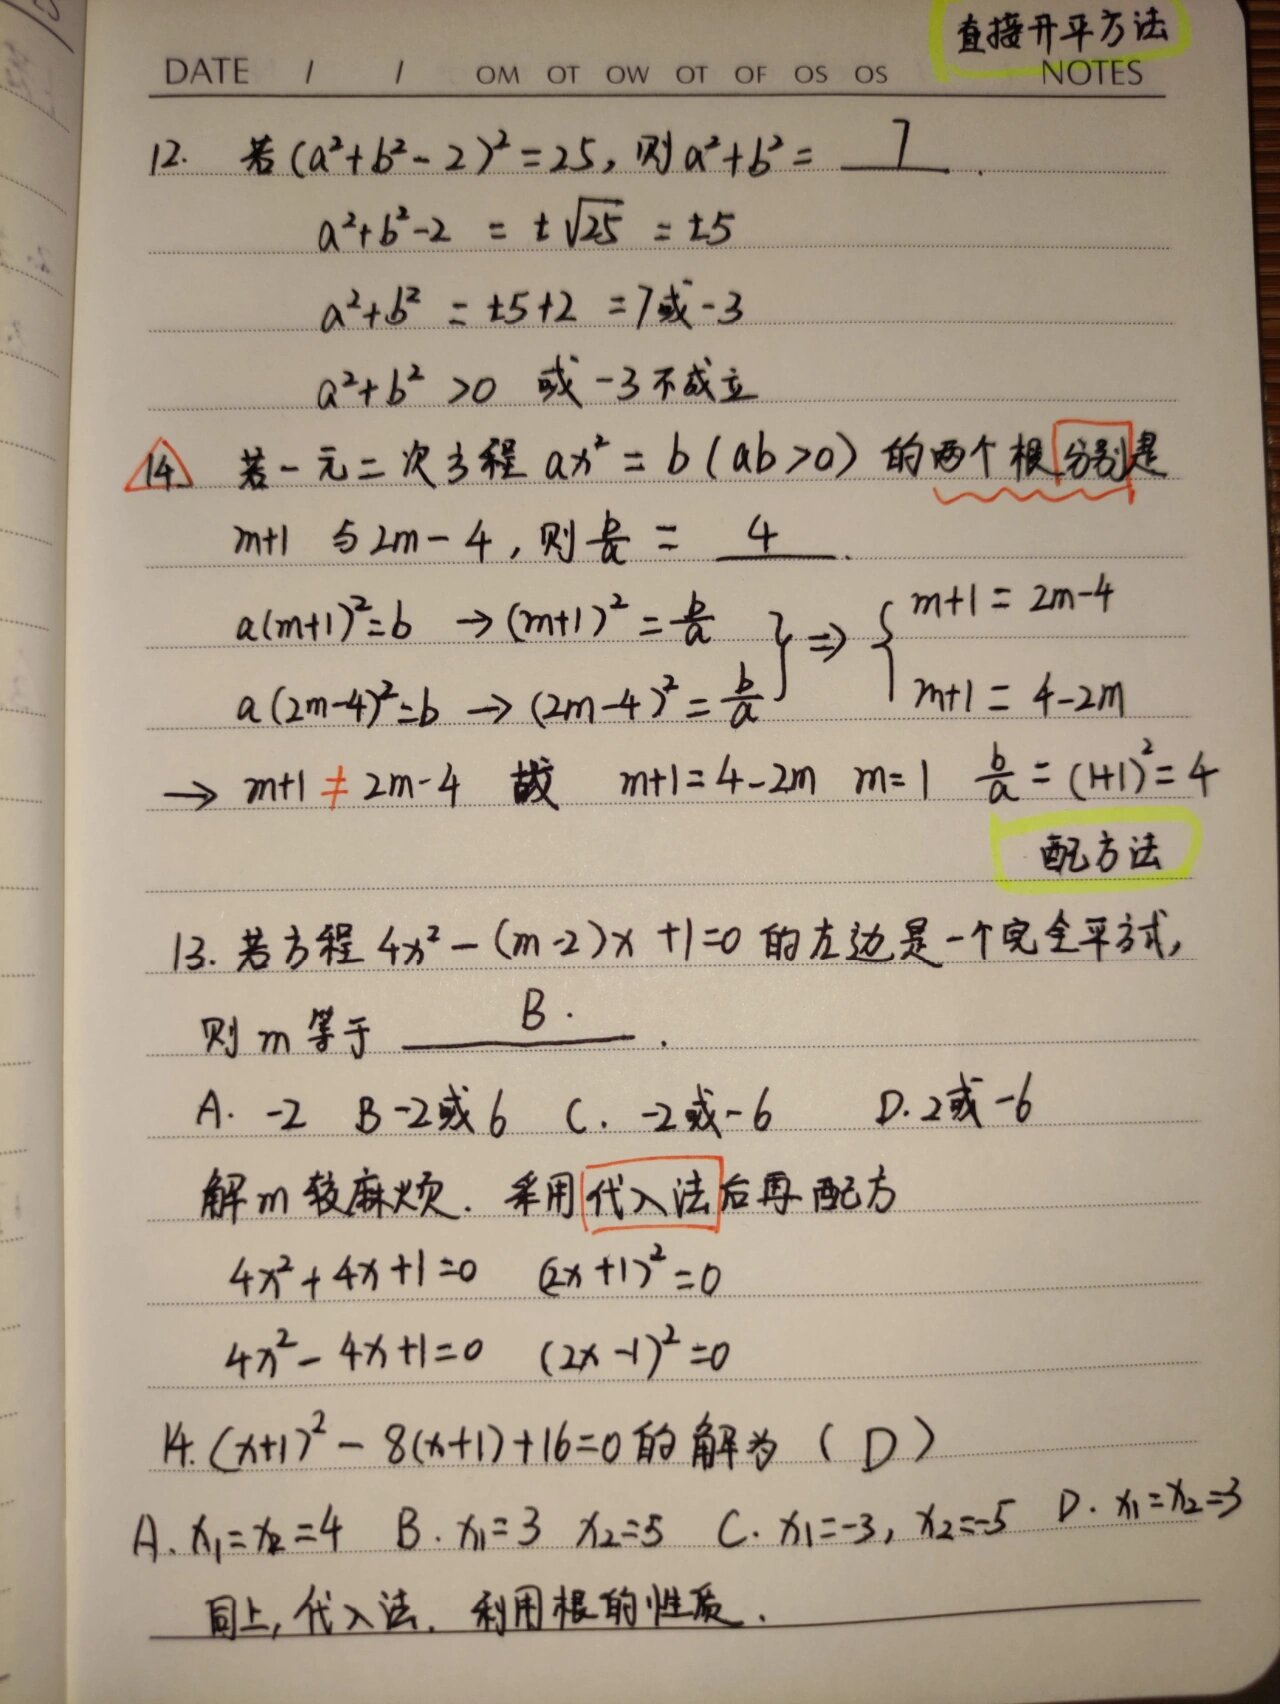 直接开平方法
DATE / / OM OT OW OT OF OS OS NOTES
12. 若(a²+b²-2)²=25,则a²+b²= 7 .
a²+b²-2 = ±√25 = ±5
a²+b² = ±5+2 = 7或-3
a²+b² >0 或 -3不成立
14. 若一元二次方程 ax²=b(ab>0) 的两个根分别是
m+1 与 2m-4,则 b/a = 4 .
a(m+1)²=b → (m+1)² = b/a } ⇒ { m+1 = 2m-4
a(2m-4)²=b → (2m-4)² = b/a m+1 = 4-2m
→ m+1 ≠ 2m-4 故 m+1=4-2m m=1 b/a = (1+1)² = 4
配方法
13. 若方程 4x²-(m-2)x+1=0 的左边是一个完全平方式,
则 m 等于 B. .
A. -2 B -2或6 C. -2或-6 D. 2或-6
解m较麻烦. 采用代入法后再配方
4x²+4x+1=0 (2x+1)²=0
4x²-4x+1=0 (2x-1)²=0
14. (x+1)²-8(x+1)+16=0的解为(D)
A. x₁=x₂=4 B. x₁=3 x₂=5 C. x₁=-3, x₂=-5 D. x₁=x₂=3
同上,代入法. 利用根的性质.